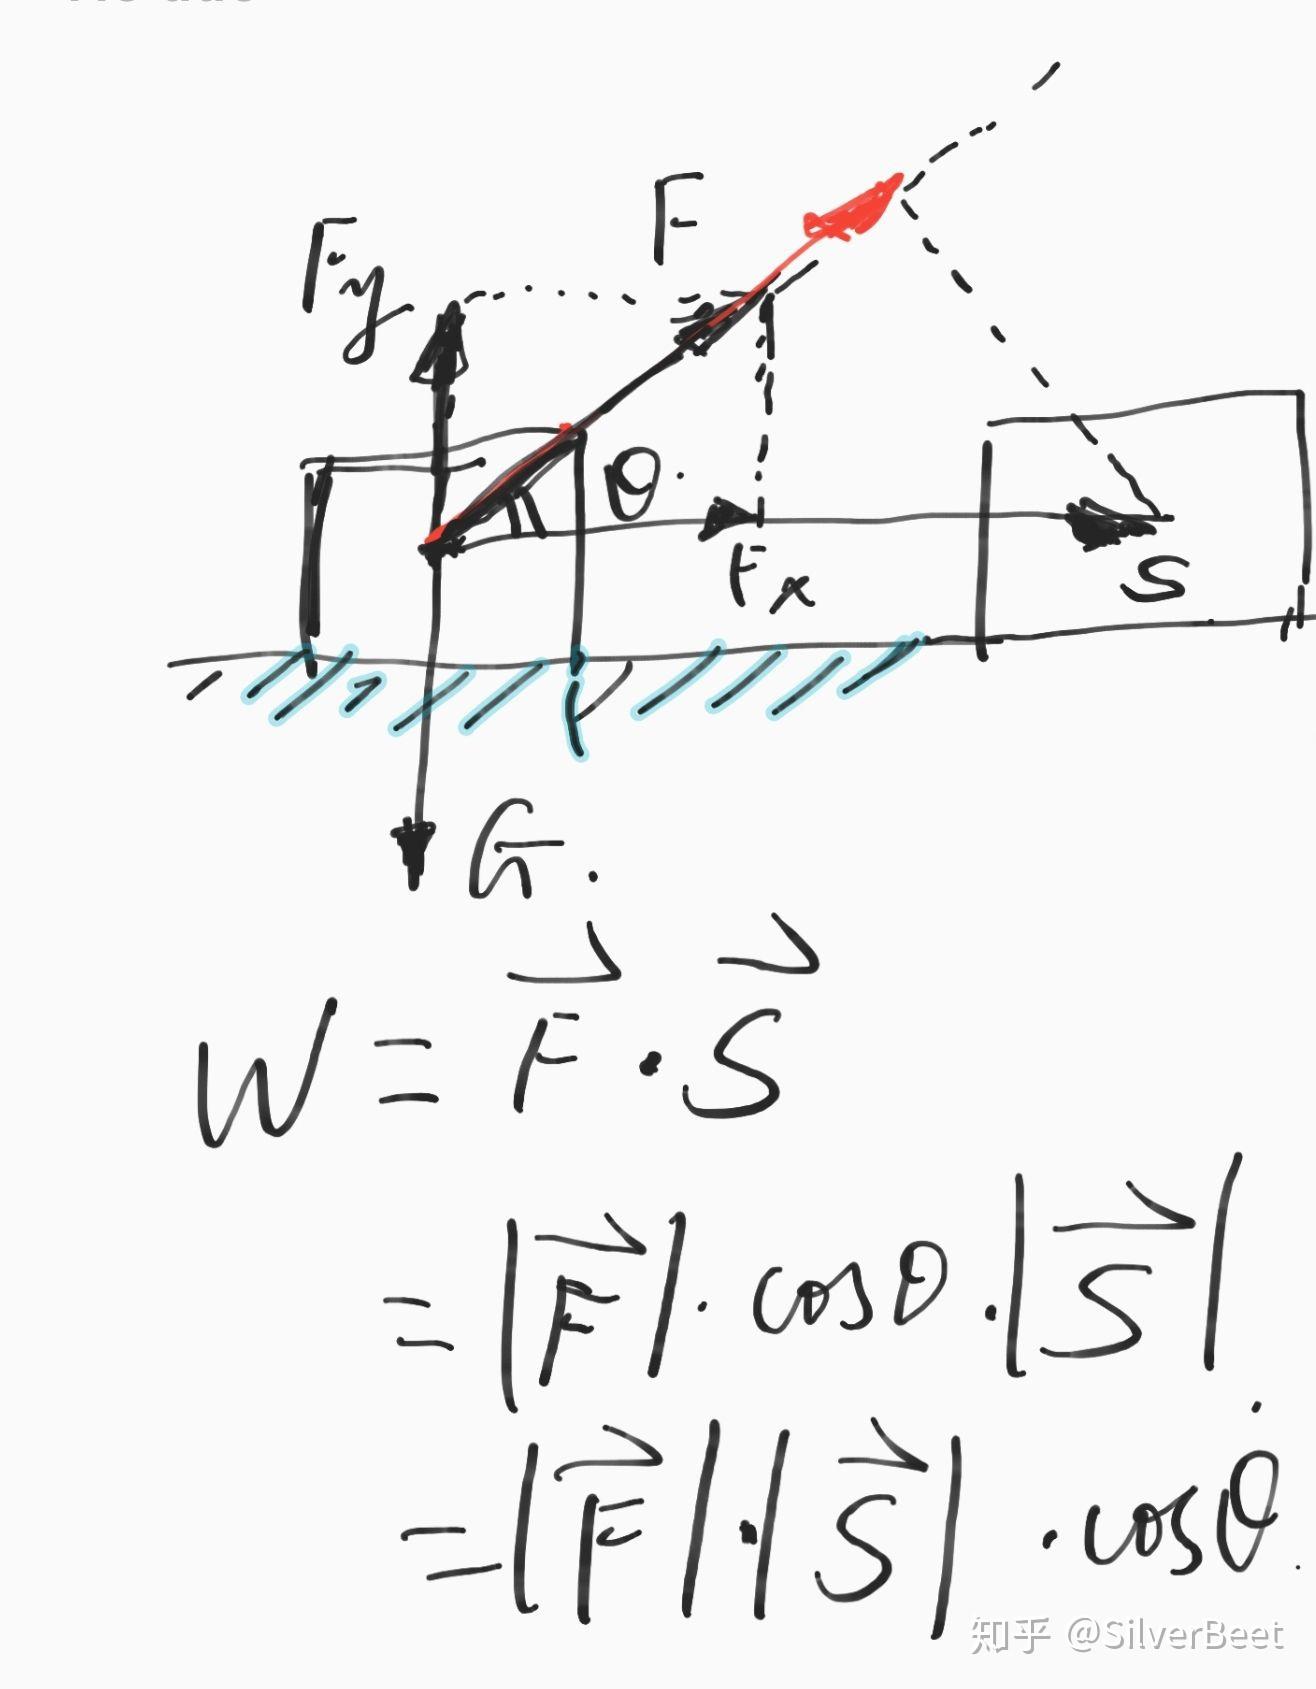 F
Fy
θ.
Fx
S
G.
W = F⃗ · S⃗
= |F⃗| · cosθ · |S⃗|
= |F⃗| · |S⃗| · cosθ.
知乎 @SilverBeet